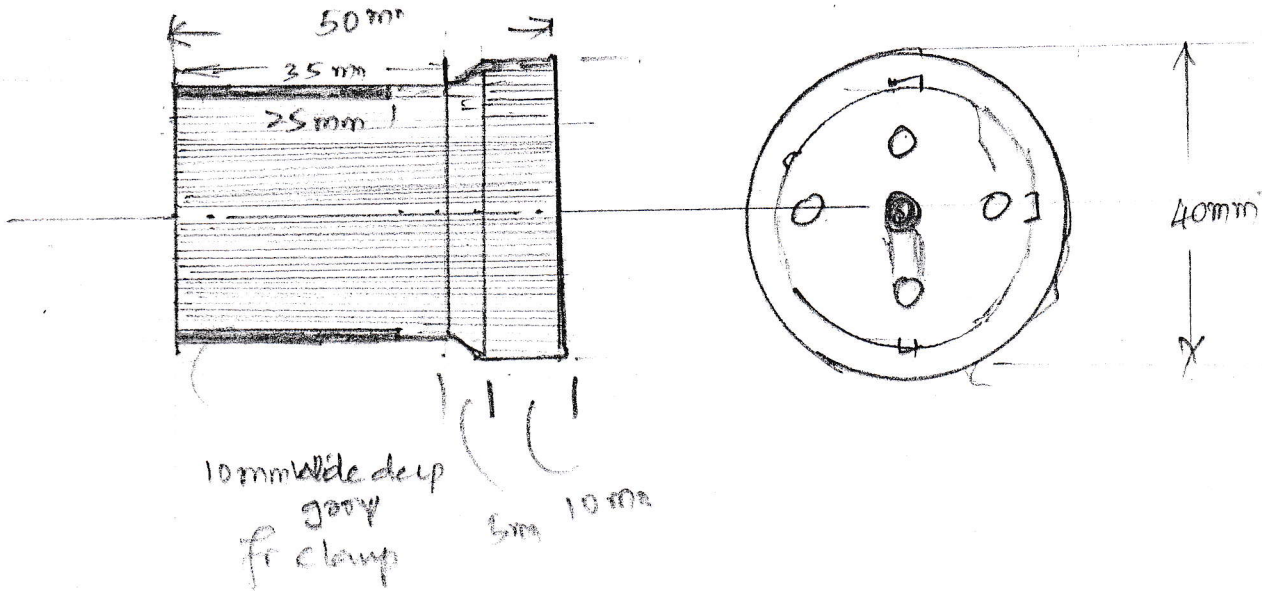 50 mm
35 mm
25 mm
40mm
10mm Wide deep
groov
fr clamp
5m
10 mm